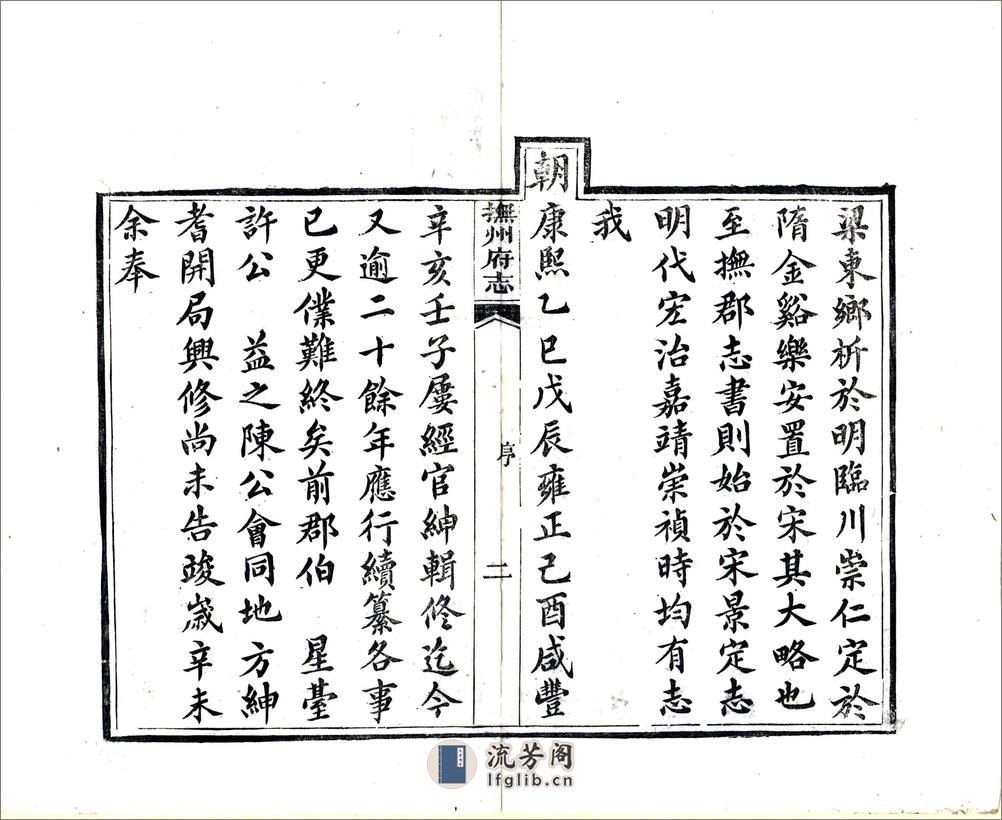 梁東鄉析於明臨川崇仁定於
隋金谿樂安置於宋其大略也
至撫郡志書則始於宋景定志
明代宏治嘉靖崇禎時均有志
我
朝康熙乙巳戊辰雍正己酉咸豐
撫州府志
序
二
辛亥壬子屢經官紳輯修迄今
又逾二十餘年應行續纂各事
已更僕難終矣前郡伯 星臺
許公 益之陳公會同地方紳
耆開局興修尚未告竣歲辛未
余奉
流芳阁
lfglib.cn